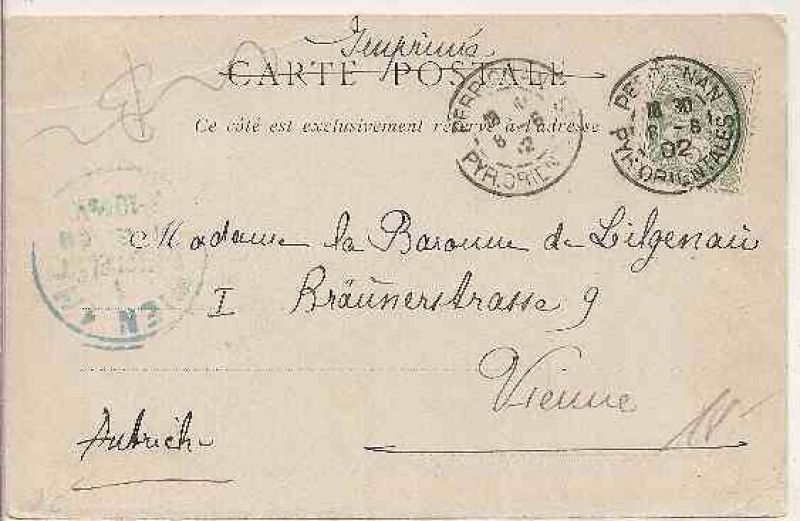 Imprimés
CARTE POSTALE
Ce côté est exclusivement réservé à l'adresse
PERPIGNAN
8 - 6
02
PYR. ORIENT.
PERPIGNAN
30
8 - 6
02
PYR. ORIENTALES
WIEN
Madame la Baronne de Lilgenau
I Bräunerstrasse 9
Vienne
Autriche